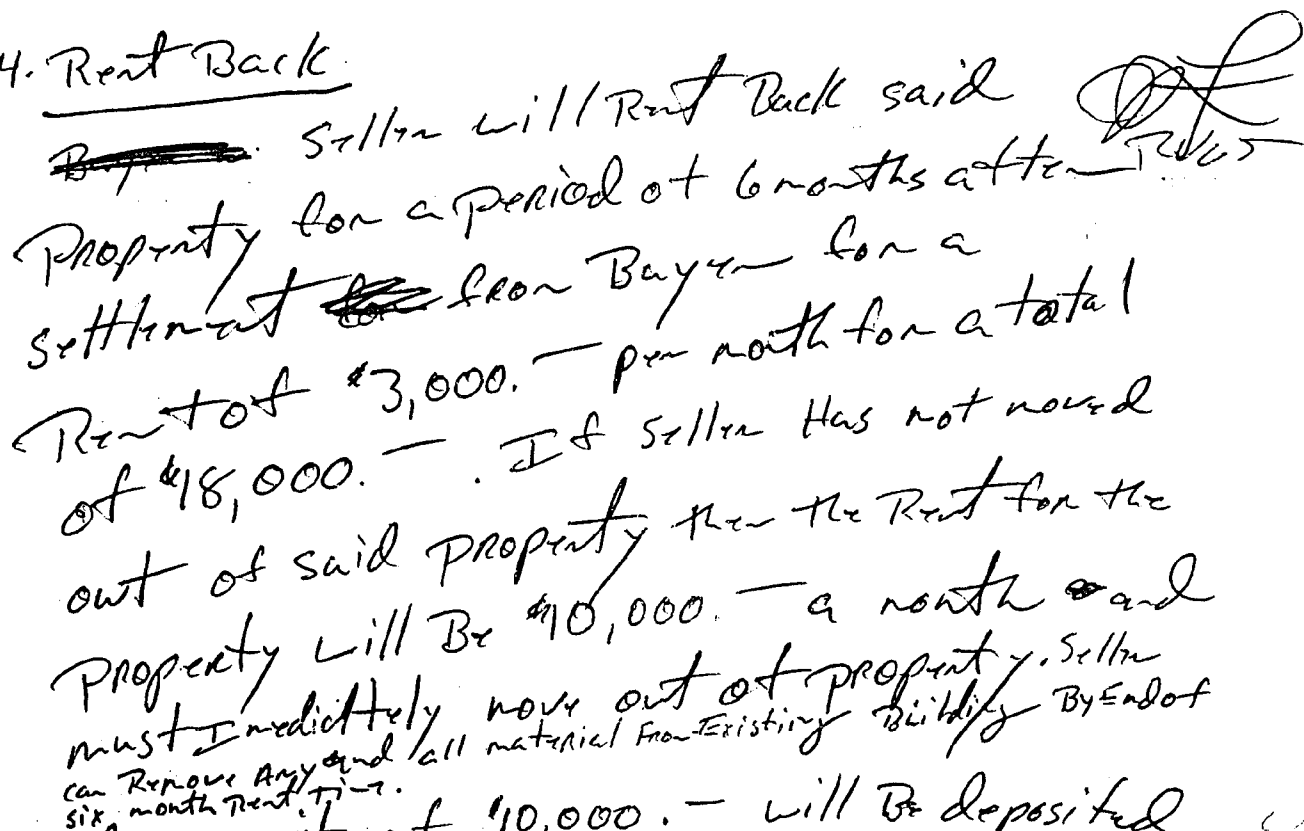 4. Rent Back
Seller will Rent Back said
Property for a period of 6 months after
settlement from Buyer for a
Rent of $3,000.— per month for a total
of $18,000.— . If seller Has not moved
out of said property then the Rent for the
property will Be $10,000.— a month and
must Imedicttely move out of property. Seller
can Remove Any and all material From Existing Building By End of
six month Rent. Time.
of $10,000.— will Be deposited